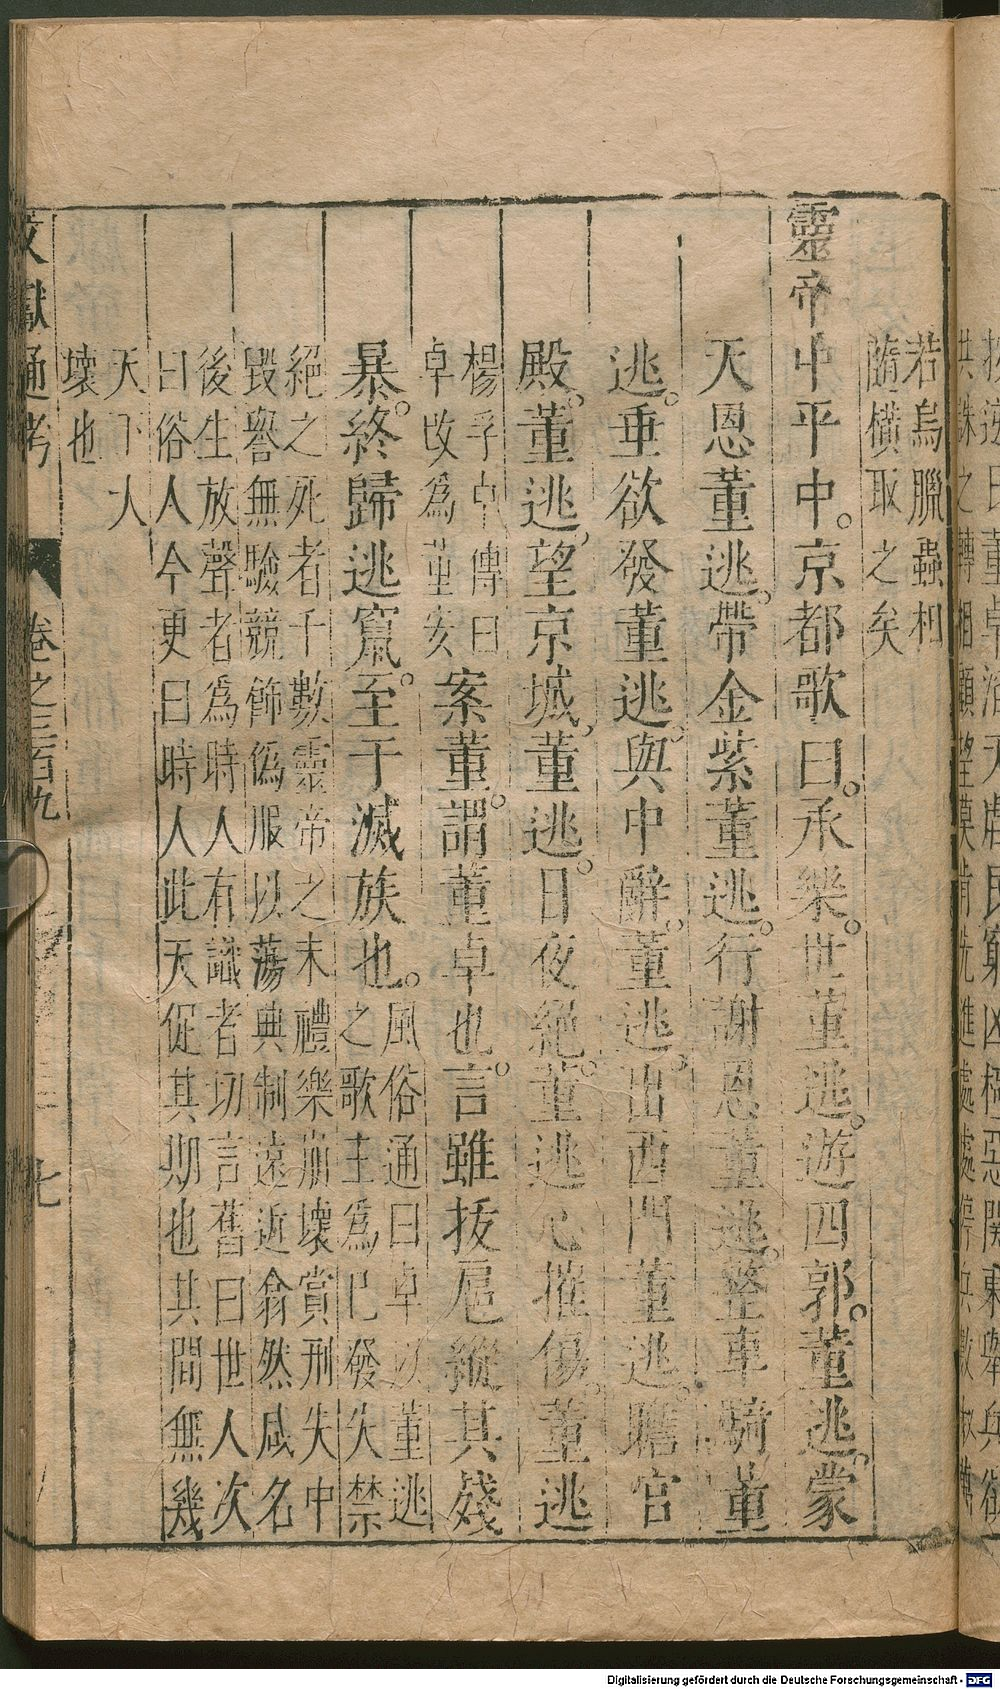 若烏臘蟲相
隨橫取之矣
靈帝中平中。京都歌曰。承樂。世董逃。遊四郭。董逃。蒙
天恩董逃。帶金紫董逃。行謝恩董逃。整車騎董
逃。垂欲發董逃。與中辭。董逃。出西門董逃。瞻宮
殿。董逃。望京城。董逃。日夜絕。董逃心摧傷。董逃
楊孚卓傳曰
卓改為董安
案董。謂董卓也。言雖拔扈縱其殘
暴。終歸逃竄。至于滅族也。
風俗通曰卓以董逃
之歌主為巳發失禁
絕之死者千數靈帝之末禮樂崩壞賞刑失中
毀譽無驗競飾偽服以蕩典制遠近翕然咸名
後生放聲者為時人有識者切言舊曰世人次
曰俗人今更曰時人此天促其期也其間無幾
天下大
壞也
文獻通考
卷之三百九
七
Digitalisierung gefördert durch die Deutsche Forschungsgemeinschaft - DFG